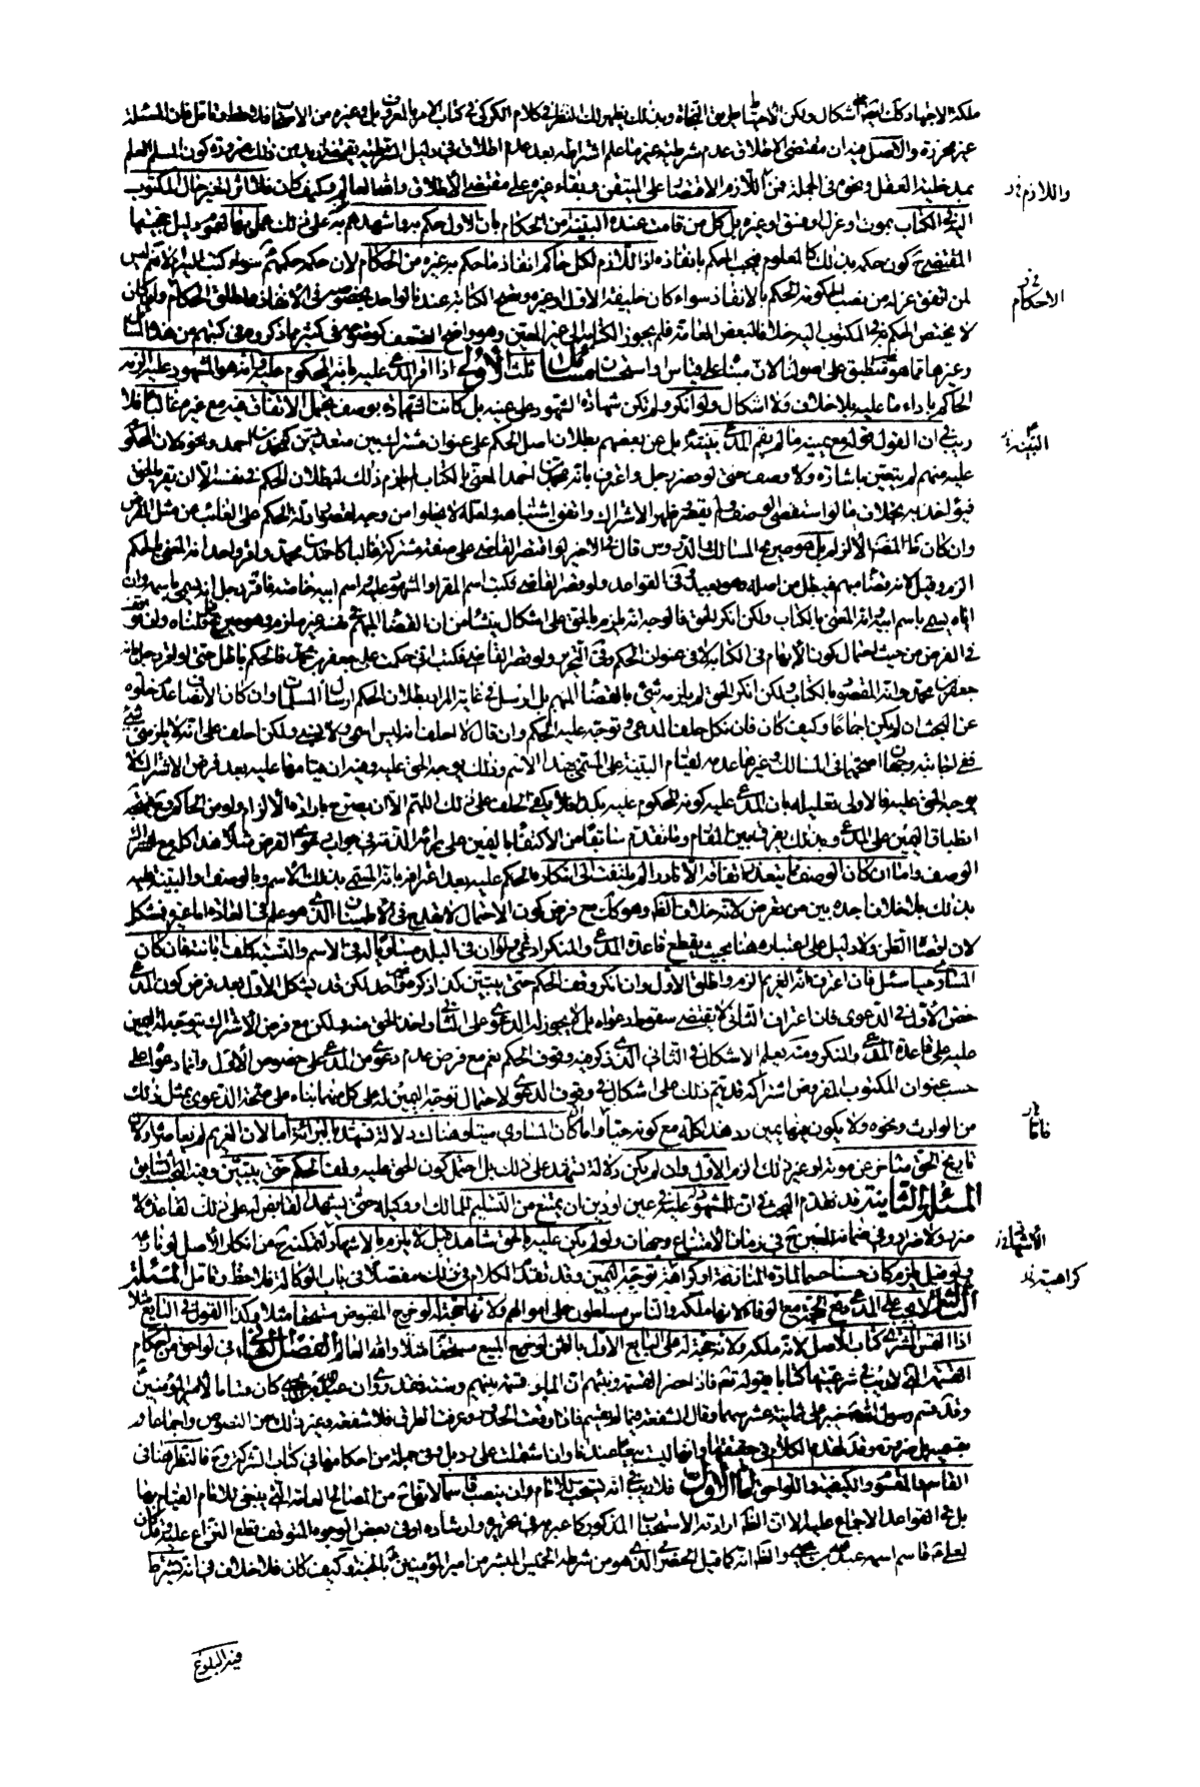 ملكة الاجتهاد كذلك اشكال ولكن الاحتياط طريق النجاة وبذلك يظهر لك النظر في كلام الكركي في كتاب الامر بالمعروف بل وغيره من الاصحاب فلاحظ وتامل فان المسئلة
غير محررة والاصل فيه ان مقتضى الاطلاق عدم شرطية غير ما علم اشتراطه بعد عدم اطلاق في دليل الشرطية يقتضي ازيد من ذلك ضرورة كون المسلم العلم
واللازم
بمدخلية العقل ونحوه في الجملة فمن اللازم الاقتصار على المتيقن وبقاء غيره على مقتضى الاطلاق والله العالم وكيف كان فلا اثر لتغير حال المكتوب
اليه في الكتاب بموت او عزل او فسق او غيره بل كل من قامت عنده البينة من الحكام بان الاول حكم به واشهدهم به على ذلك عمل بها لعموم دليل حجيتها
المقتضي ح كون حكمه بذلك كالمعلوم فيجب الحكم بانفاذه اذ اللازم لكل حاكم انفاذ ما حكم به غيره من الحكام لان حكمه حكمهم سواء كتب اليه اولا
في الاحكام
لمن اتفق عزله من نصب الحكومة الحكم بالانفاذ سواء كان خليفة الاول او غيره وضع الكتابة عندنا لواحد بخصوصه في الانفاذ ما طلق الحكام وان كان
لا يختص الحكم في المكتوب اليه خلافا لبعض العامة فلم يجوز الكتابة الى غير المعين وهو واضح الضعف كوضوحه في كثير مما ذكروه في كتبهم من هذه المسائل
وغيرها مما هو منطبق على اصولنا لان مبناه على قياس واستحسان مسائل ثلث الاولى اذا اقر المدعى عليه بانه المحكوم عليه وانه هو المشهود عليه الزمه
الحاكم باداء ما عليه بلا خلاف ولا اشكال ولو انكر ولم تكن شهادة الشهود على عينه بل كانت الشهادة بوصف يحتمل الاتفاق فيه مع غيره غالبا فلا
البينة
ريب في ان القول قوله مع يمينه ما لم يقم المدعي بينة بل عن بعضهم بطلان اصل الحكم على عنوان مشترك بين متعددين كمحمد بن احمد ونحوه لان المحكوم
عليه منهم لم يتعين باشارة ولا وصف حتى لو حضر رجل واعترف بانه محمد بن احمد المعني بالكتاب لم يلزم ذلك لبطلان الحكم في نفسه الا ان يقر بالحق
فيؤاخذ به بخلاف ما لو استقصى الوصف ولم يقصر فظهر الاشتراك واتفق اشتباهه ولعله لا يخلو من وجه لقصور ادلة الحكم على الغائب من مثل الفرض
وان كان ظاهر المصنف الالزام بل هو صريح المسالك والدروس قال في الاخير لو اقتصر القاضي على صفة مشتركة غالبا كاحمد بن محمد واقر واحد انه المعني بالحكم
الزم وقيل لا لانه قضاء مبهم فيبطل من اصله وهو بعيد وفي القواعد ولو قصر القاضي فكتب اسم المقر او المشهود عليه واسم ابيه خاصة فاقر رجل انه يسمى باسمه وان
اباه يسمى باسم ابيه وانه المعني بالكتاب ولكن انكر الحق فالوجه انه يلزم بالحق على اشكال ينشا من ان القضاء المبهم في نفسه غير ملزم وهو صريح فيما قلناه ولو توقف
في الفرض من حيث احتمال كون الابهام في الكتابة لا في عنوان الحكم وفي التحرير ولو قصر القاضي فكتب اني حكمت على جعفر بن محمد فالحكم باطل حتى لو اقر رجل بانه
جعفر بن محمد وانه المقصود بالكتاب ولكن انكر الحق لم يلزمه شيء بالقضاء المبهم بل ارسل في غاية المراد بطلان الحكم ارسال المسلمات وان كان الانصاف عدم خلوه
عن البحث ان لم يكن اجماعا وكيف كان فان نكل حلف المدعي وتوجه عليه الحكم وان قال لا احلف انه ليس اسمي ولا نسبي ولكن احلف على انه لا يلزمني شيء
ففي اجابته وجهان اصحهما في المسالك وغيرها عدمه لقيام البينة على المسمى بهذا الاسم وذلك يوجه الحق عليه وفيه ان قيامها عليه بعد فرض الاشتراك لا
يوجه الحق عليه فالاولى تعليله بان المدعى عليه كونه المحكوم عليه بكذا فلا يكفي الحلف على ذلك اللهم الا ان يصرح بارادة الالزام ولو من الحاكم وح يتجه
انطباق اليمين على المدعى وبذلك يفرق بين المقام وما تقدم سابقا من الاكتفاء باليمين على برائة الذمة في جواب دعوى القرض مثلا هذا كله مع اشتراك
الوصف واما ان كان الوصف مما يتعذر اتفاقه الا نادرا لم يلتفت الى انكاره بالحكم عليه بعد اعترافه بانه المسمى بذلك الاسم وبالوصف او البينة عليه
بذلك بلا خلاف اجده بين من تعرض له لانه خلاف الظاهر وهو كذلك مع فرض كون الاحتمال لا يقدح في الاطمينان الذي هو علم في العادة اما غيره فمشكل
لان اقصاه الظن ولا دليل على اعتباره هنا بحيث يقطع قاعدة المدعي والمنكر ادعى ولو ان في البلد مساويا له في الاسم والنسب كلف باثباته فان كان
المساوي حيا سئل فان اعترف انه الغريم الزم واطلق الاول وان انكر وقف الحكم حتى يتبين كذا ذكره غير واحد لكن قد يشكل الاول بعد فرض كون المدعي
خص الاول في الدعوى فان اعتراف الثاني لا يقتضي سقوط دعواه بل لا يجوز له الدعوى على الثاني واخذ الحق منه ولكن مع فرض الاشتراك يتوجه اليمين
عليه على قاعدة المدعي والمنكر ومنه يعلم الاشكال في الثاني الذي ذكر فيه وقوف الحكم نعم مع فرض عدم دعوى من المدعي على خصوص الاول وانما دعواه على
حسب عنوان المكتوب المفروض اشتراكه قد يتم ذلك على اشكال في وقوف الدعوى لاحتمال توجه اليمين له على كل منهما بناء على صحة الدعوى بمثل ذلك
فاما
من الوارث ونحوه ولا يكون فيها يمين رد هذا كله مع كونه حيا واما كان المساوي ميتا وهناك دلالة تشهد بالبرائة اما لان الغريم لم يعاصره او لان
تاريخ الحق متاخر عن موته او غير ذلك الزم الاول وان لم يكن دلالة تشهد على ذلك بل احتمل كون الحق عليه وقف الحكم حتى يتبين وفيه البحث السابق
المسئلة الثانية قد تقدم البحث في ان للمشهود عليه في عين او دين ان يمتنع من التسليم للمالك او وكيله حتى يشهد القابض له على ذلك لقاعدة لا
في الاشهاد
ضرر ولا ضرار وفي ضمانه العين ح في زمان الامتناع وجهان ولو لم يكن عليه بالحق شاهد قيل لا يلزمه الاشهاد لتمكنه ح من انكار الاصل لو نازعه
كراهيته
ولو قيل يلزم كان حسنا حسما لمادة المنازعة او كراهة لتوجه اليمين وقد تقدم الكلام في ذلك مفصلا في باب الوكالة فلاحظ وتامل المسئلة
الثالثة لا يجب على المدعي دفع الحجة مع الوفاء لانها ملكه والناس مسلطون على اموالهم ولانها حجة له لو خرج المقبوض مستحقا مثلا وكذا القول في البايع مثلا
اذا التمس المشتري كتاب الاصل لانه ملكه ولانه حجة له على البايع الاول بالثمن لو خرج المبيع مستحقا مثلا والله العالم الفصل الثاني في لواحق من احكام
القسمة التي لا ريب في شرعيتها كتابا بقوله تعالى فاذا حضر القسمة ونبئهم ان الماء قسمة بينهم وسنة فقد روي ان عبد الله بن يحيى كان قساما لامير المؤمنين
وقد قسم رسول الله خيبر على ثمانية عشر سهما وقال الشفعة فيما لم يقسم فاذا وقعت الحدود وعرفت الطرق فلا شفعة وغير ذلك من النصوص واجماعا وقد
الكلام في حقيقتها وانها ليست بيعا عندنا وان اشتملت على رد بل وفي جملة من احكامها في كتاب الشركة وح فالنظر هنا في
القاسم والمقسوم والكيفية واللواحق اما الاول فلا ريب في انه يستحب للامام وان ينصب قاسما لانه من المصالح العامة التي ينبغي للامام القيام بها
بل في القواعد الاجماع عليه الا ان الظاهر ارادته الاستحباب المذكور كما عبر به في تحريره وارشاده او في بعض الوجوه المتوقف قطع النزاع عليه وقد كان
لعلي قاسم اسمه عبد الله بن يحيى والظاهر انه كما قيل الحضرمي الذي هو من شرطة الخميس المبشر من امير المؤمنين بالجنة وكيف كان فلا خلاف في انه يشترط
فيه البلوغ